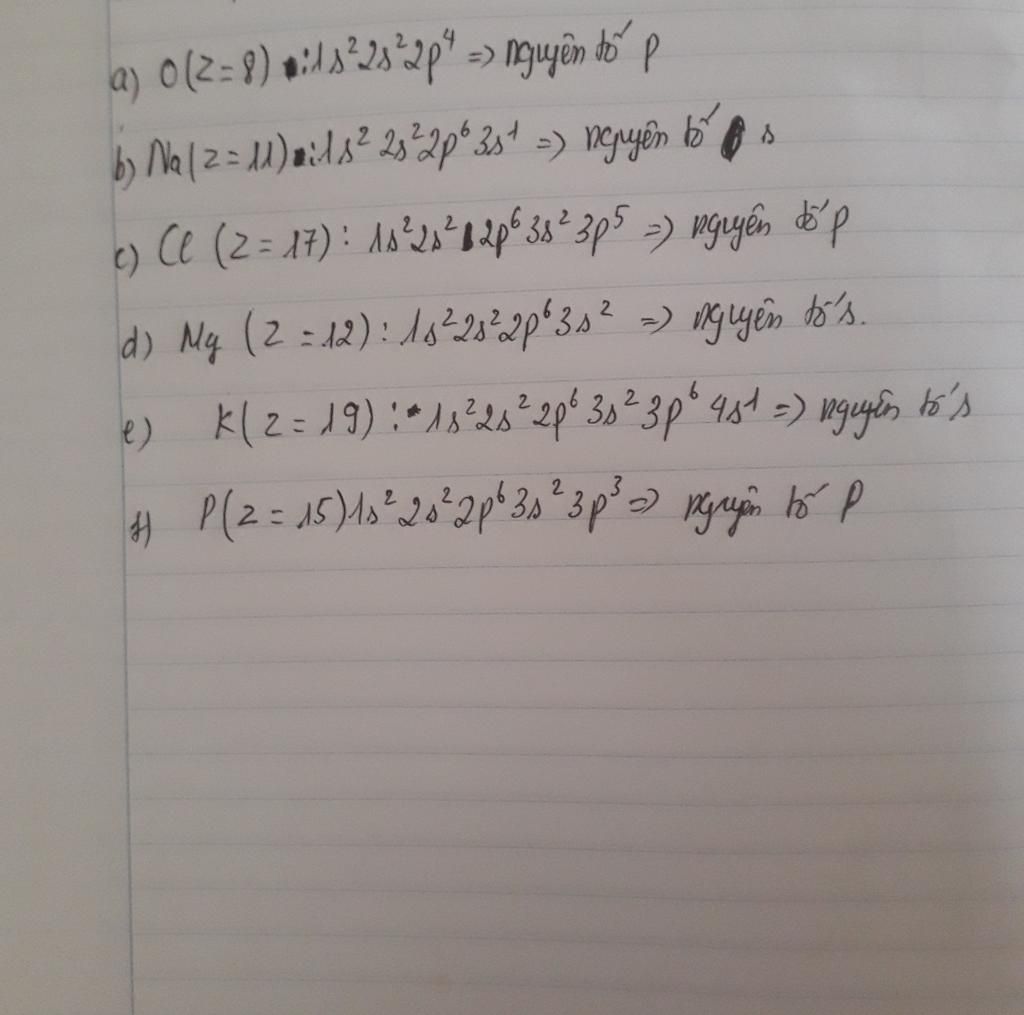 a) O(Z=8) : 1s² 2s² 2p⁴ => nguyên tố p
b) Na(Z=11) : 1s² 2s² 2p⁶ 3s¹ => nguyên tố s
c) Cl (Z=17) : 1s² 2s² 2p⁶ 3s² 3p⁵ => nguyên tố p
d) Mg (Z=12) : 1s² 2s² 2p⁶ 3s² => nguyên tố s.
e) K(Z=19) : 1s² 2s² 2p⁶ 3s² 3p⁶ 4s¹ => nguyên tố s
f) P(Z=15) 1s² 2s² 2p⁶ 3s² 3p³ => nguyên tố p